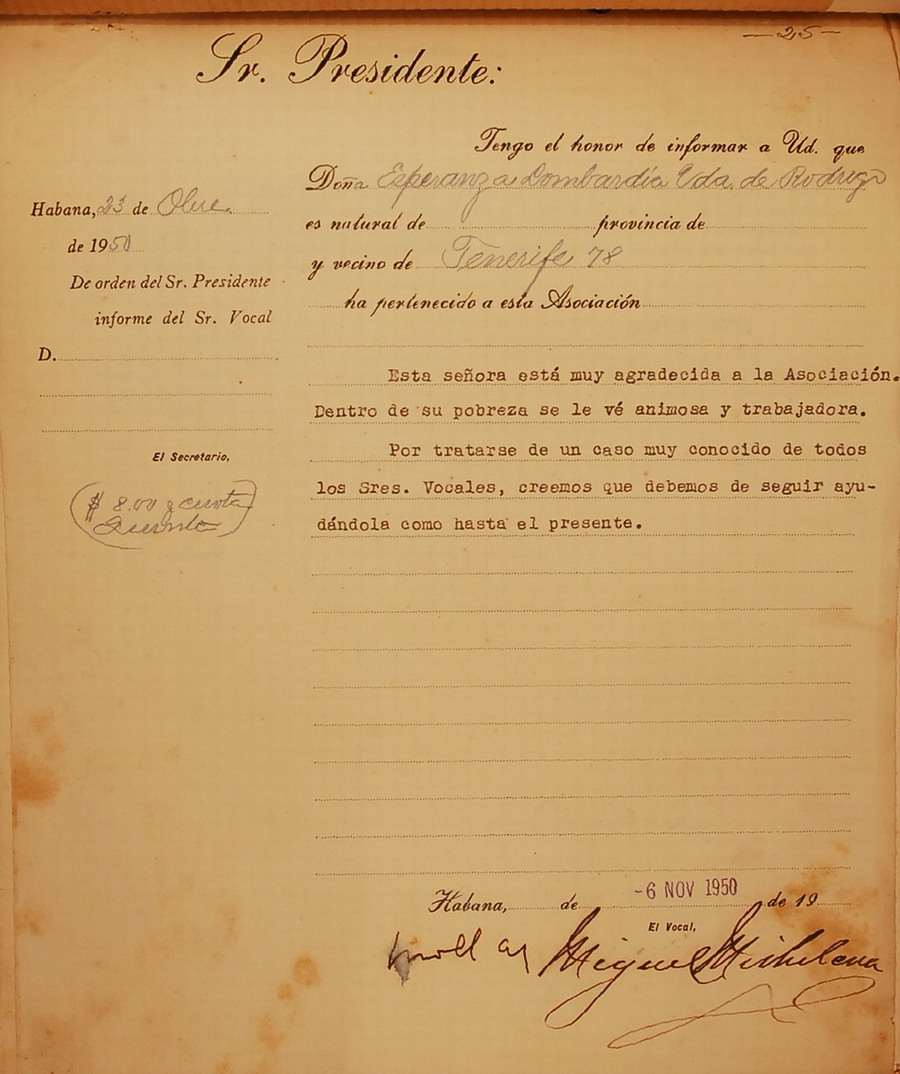 —25—
Sr. Presidente:
Tengo el honor de informar a Ud. que
Doña Esperanza Lombardía Vda. de Rodrigo
es natural de provincia de
y vecino de Tenerife 78
ha pertenecido a esta Asociación
Habana, 23 de
de 1950
De orden del Sr. Presidente
informe del Sr. Vocal
D.
El Secretario,
$ 8.00 y cuota
Esta señora está muy agradecida a la Asociación.
Dentro de su pobreza se le vé animosa y trabajadora.
Por tratarse de un caso muy conocido de todos
los Sres. Vocales, creemos que debemos de seguir ayu-
dándola como hasta el presente.
Habana, de -6 NOV 1950 de 19
El Vocal,
Miguel Michelena